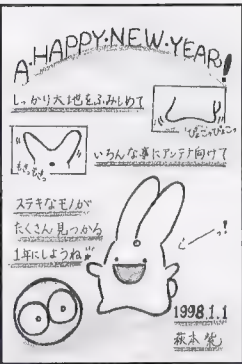 A·HAPPY·NEW·YEAR!
しっかり大地をふみしめて
ぴょこっぴょこっ
いろんな事にアンテナ向けて
ステキなモノが
たくさん見つかる
1年にしようね
1998.1.1